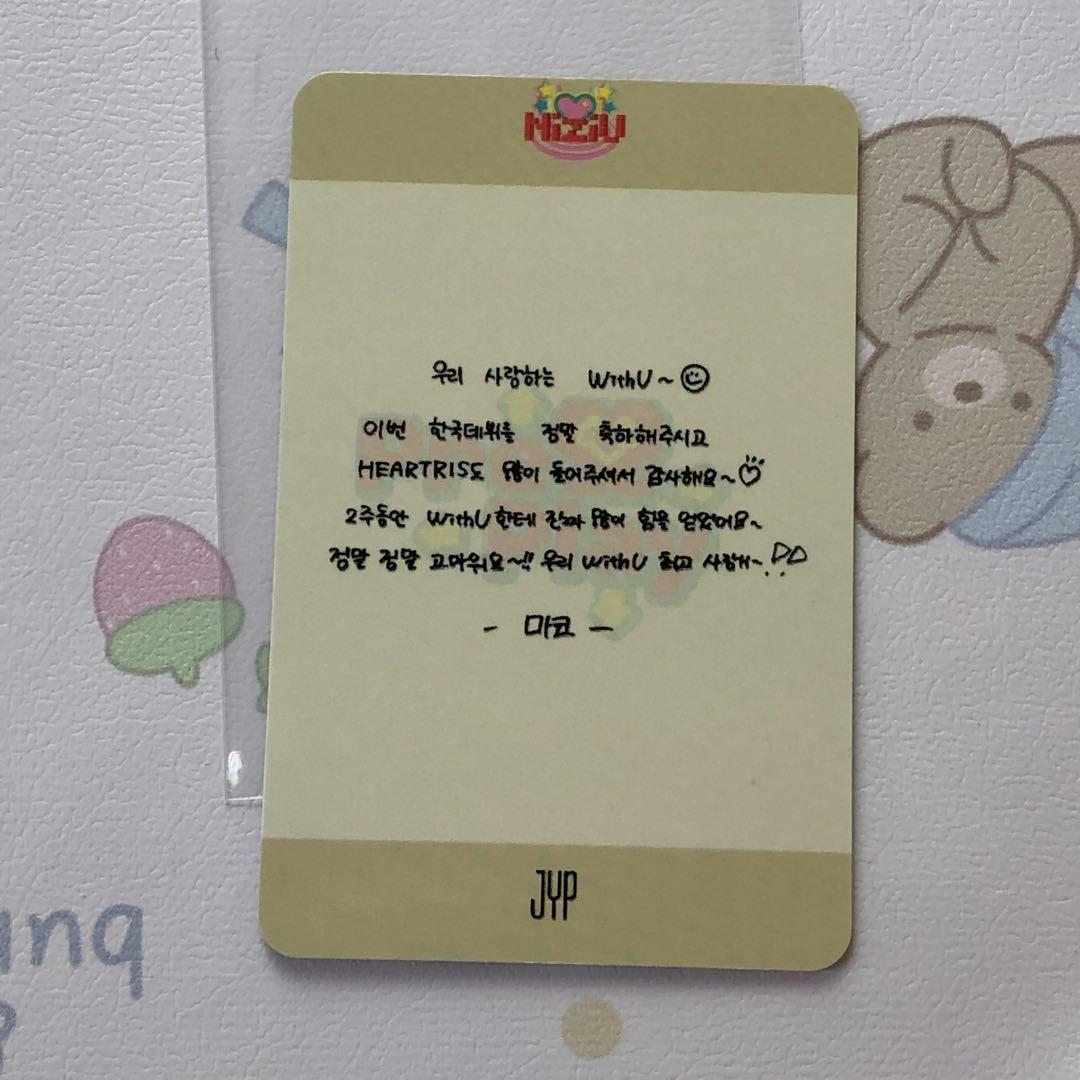 NiziU
우리 사랑하는 WithU~
이번 한국데뷔를 정말 축하해주시고
HEARTRIS도 많이 들어주셔서 감사해요~
2주동안 WithU한테 진짜 많이 힘을 얻었어요~
정말 정말 고마워요~!! 우리 WithU 최고 사랑해~
- 마코 -
Press
Play
JYP
ung